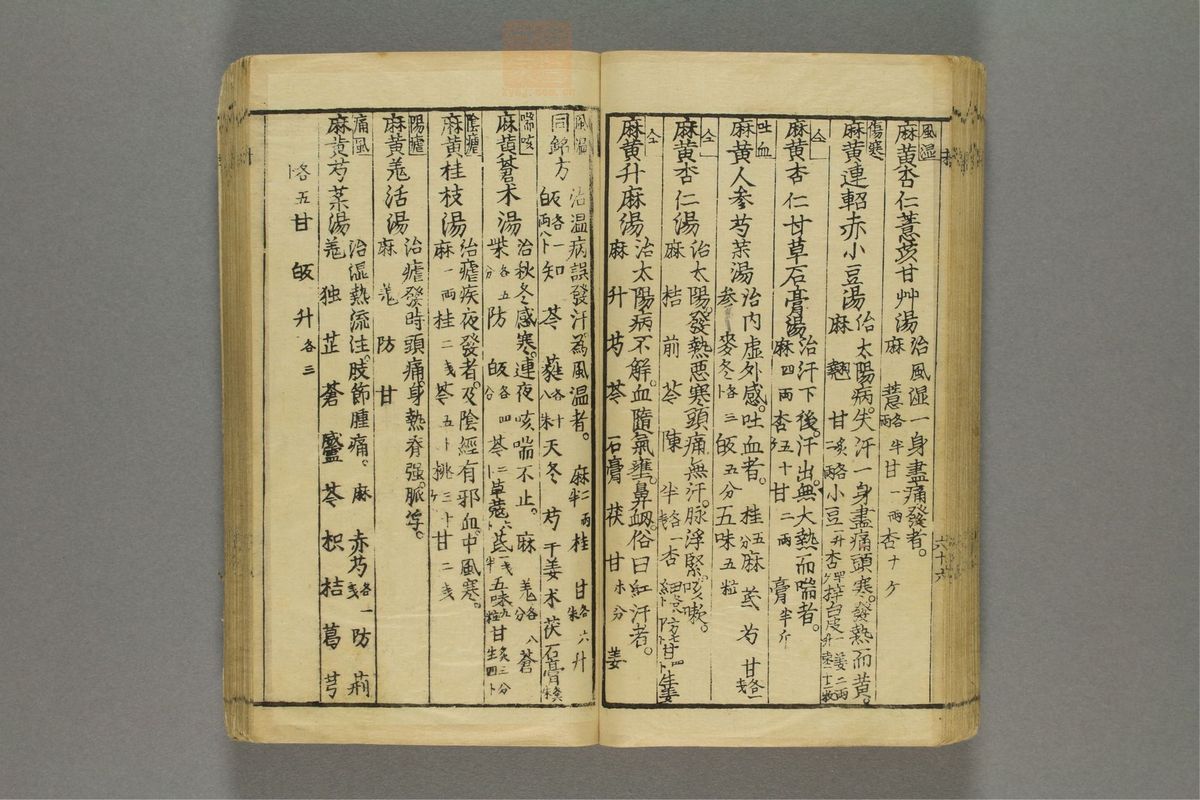 風湿
麻黄杏仁薏苡甘艸湯
治風湿一身盡痛發者。
麻 薏各半両 甘一両 杏十ケ
傷寒
麻黄連軺赤小豆湯
治太陽病。失汗一身盡痛頭寒。發熱而黄。
麻 翹 甘炙各二両 小豆一升 杏 梓白皮一升 姜二両
仝
麻黄杏仁甘草石膏湯
治汗下後。汗出。無大熱而喘者。
麻四両 杏五十 甘二両 膏半斤
吐血
麻黄人参芍薬湯
治内虚外感。吐血者。桂五分 麻 芪 芍 甘各一戋
参 麥冬各三卜 皈五分 五味五粒
仝
麻黄杏仁湯
治太陽。發熱悪寒頭痛無汗。脉浮緊。咳嗽。
麻 桔 前 芩 陳 半各一戋 杏 細 防 甘四卜 生姜
仝
麻黄升麻湯
治太陽病不解。血隨氣壅。鼻衂。俗曰紅汗者。
麻 升 芍 芩 石膏 茯 甘 姜
六十六
風温
同錦方
治温病誤發汗。為風温者。麻二両半 桂 甘各六朱 升
皈各一両八卜 知 芩 蕤各十八朱 天冬 芍 干姜 术 茯 石膏
喘咳
麻黄蒼术湯
治秋冬感寒。連夜咳喘不止。麻 羌各八分 蒼
柴各五分 防 皈各四分 芩二卜 草蔲六卜 芪二戋半 五味九粒 甘炙三分 生四卜
陰瘧
麻黄桂枝湯
治瘧疾夜發者。及陰經有邪血。中風寒。
麻一両 桂二戋 芩五卜 桃三十ケ 甘二戋
陽瘧
麻黄羗活湯
治瘧發時頭痛。身熱脊强。脈浮。
麻 羗 防 甘
痛風
麻黄芍薬湯
治湿熱流注。肢節腫痛。麻 赤芍各一戋 防 荊
羗 独 芷 蒼 靈 芩 枳 桔 葛 芎
各五卜 甘 皈 升各三